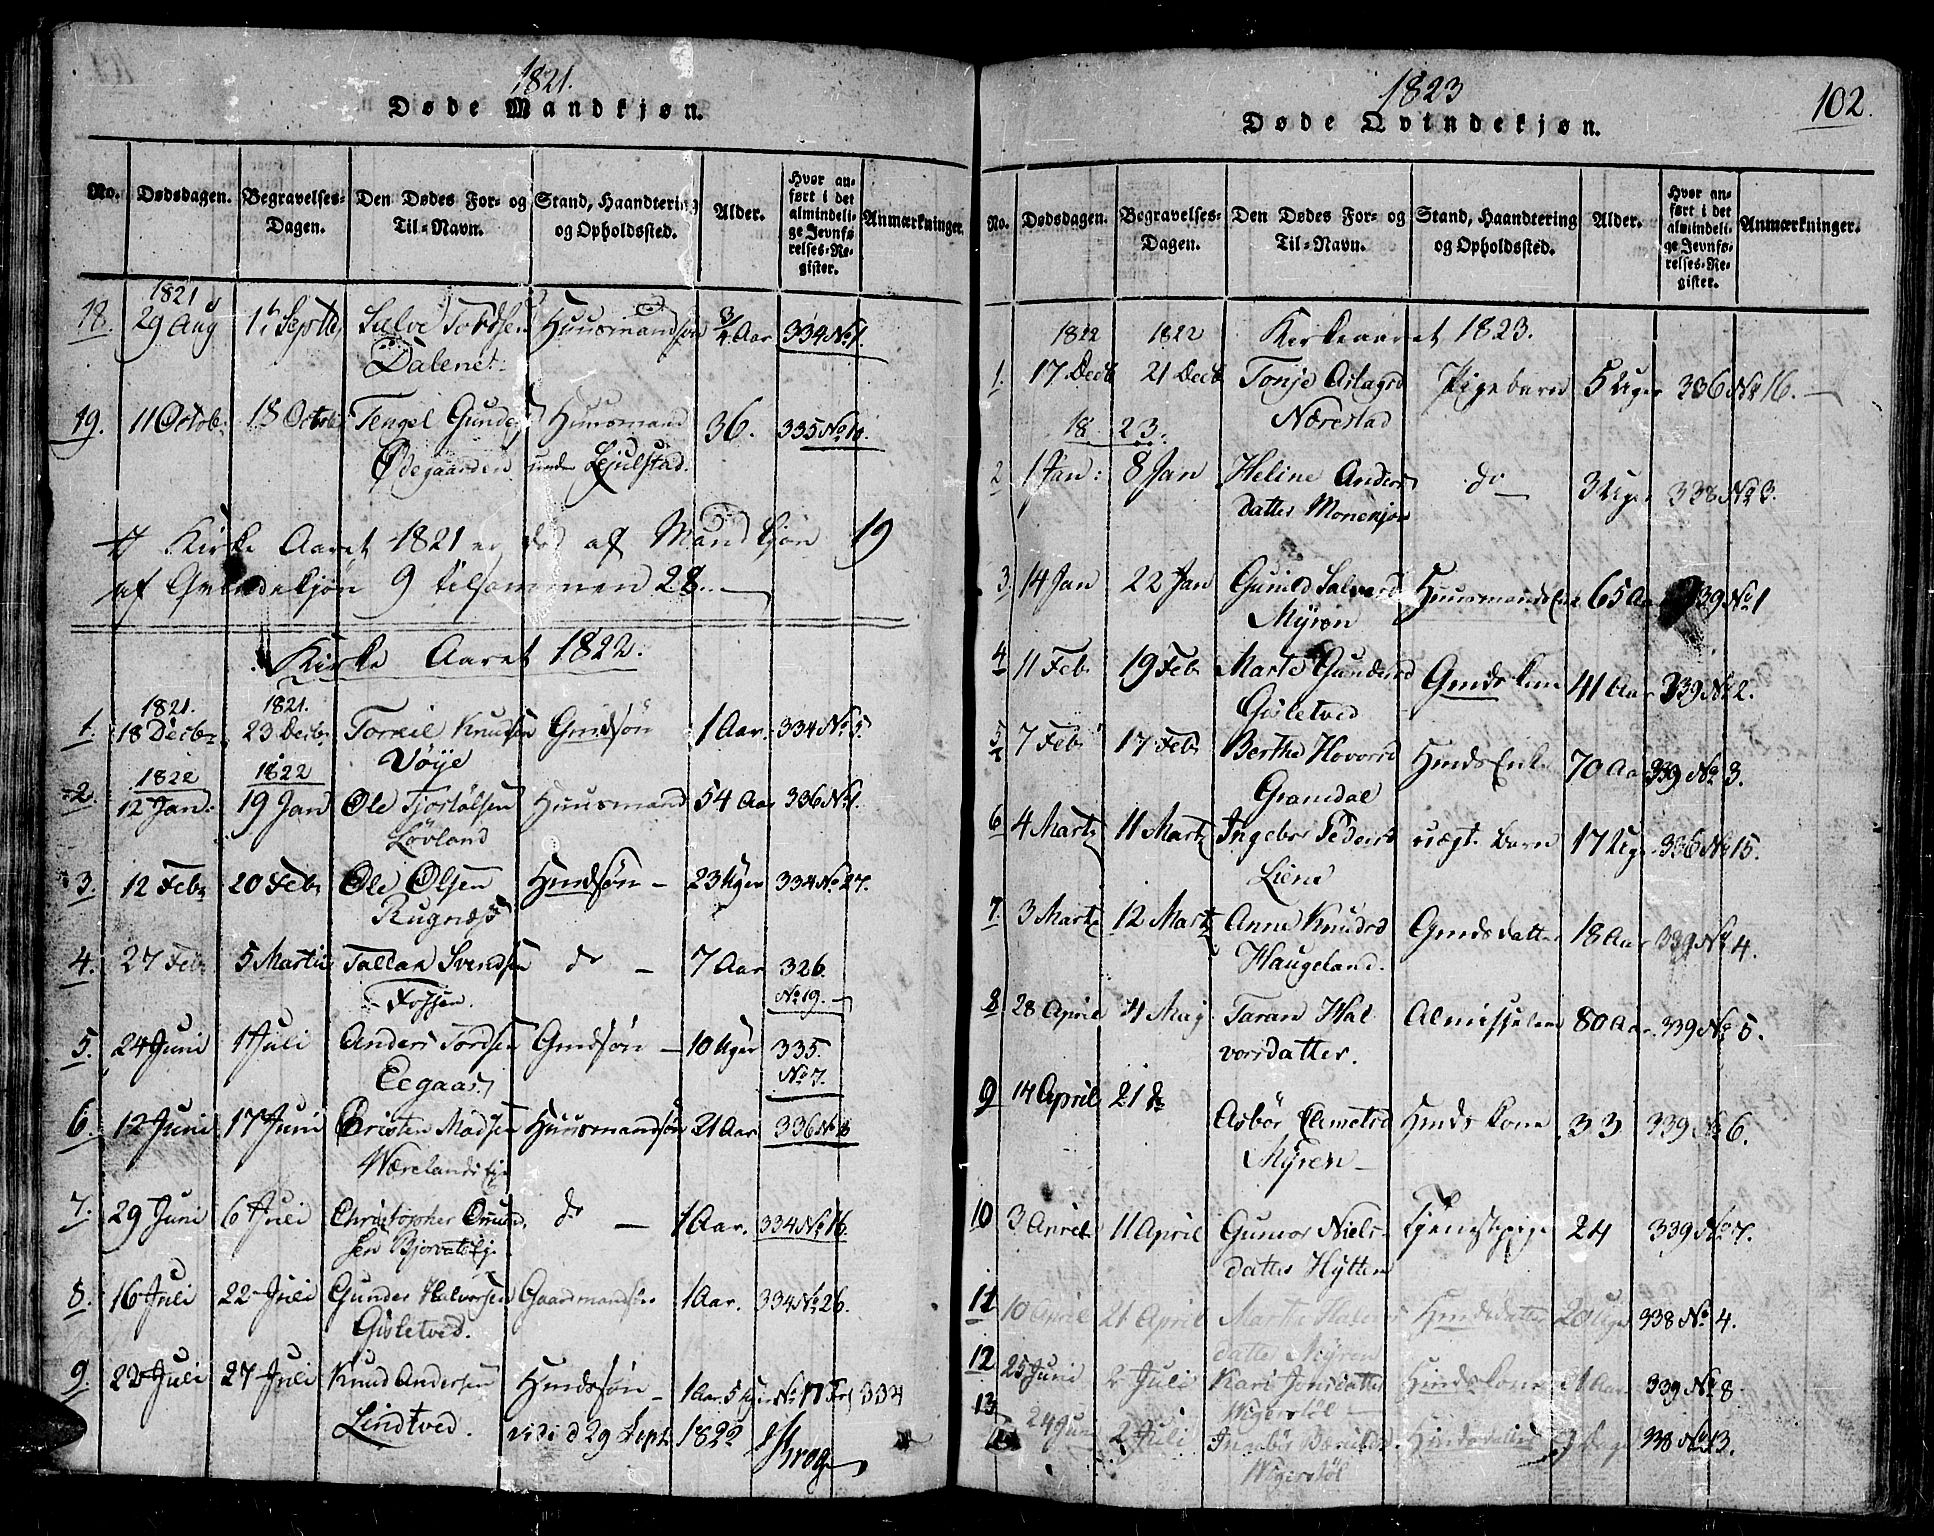 1821.
Døde Mandkjøn.
No. Dødsdagen. Begravelses-Dagen. Den Dødes For- og Til-Navn. Stand, Haandtering og Opholdssted. Alder. Hvor anført i det almindelige Jevnførelses-Register. Anmærkninger.
1821
18. 29 Aug 1 Septb Salve Tordsen Huusmandsøn 3/4 Aar 334 No 1.
Dalene
19. 11 Octob: 18 Octob Tengel Gunders Huusmand 36. 335 No 10.
Ødegaarden under Lejulstad.
Kirke Aaret 1821 er død af Mandkjøn 19
af Qvindekjøn 9 tilsammen 28.
Kirke Aaret 1822.
1821. 1821.
1. 18 Decbr 23 Decbr Torkil Knudsen Gmdsøn 1 Aar. 334 No 5.
Vøye
1822 1822
2. 12 Jan. 19 Jan Ole Tjostølsen Huusmand 54 Aar 336 No 9.
Løvland
3. 12 Feb 20 Feb Ole Olsen Hmdsøn - 23 Uger 334 No 27.
Rugnæs
4. 27 Feb 5 Martii Tallak Svendsen do - 7 Aar 326.
Fossen. No 19.
5. 24 Juni 1 Juli Anders Tordsen Gmdsøn - 10 Uger 335.
Eegaas No 7.
6. 12 Juni 17 Juni Cristen Madsen Huusmandsøn 21 Aar 336 No 8
Wærelands Eje
7. 29 Juni 6 Juli Christopher Omund do - 1 Aar. 334 No 16.
sen Bjorvats Ej.
8. 16 Juli 22 Juli Gunder Halvorsen Gaardmandsøn 1 Aar. 334 No 26.
Gisletved.
9. 22 Juli 27 Juli Knud Andersen Hmdsøn - 1 Aar. 5 Uger No 17 Fol 334
Lindtved. vidi d 29 Sept 1822 Krog
1823
Døde Qvindekjøn.
102.
No. Dødsdagen. Begravelses-Dagen. Den Dødes For- og Til-Navn. Stand, Haandtering og Opholdssted. Alder. Hvor anført i det almindelige Jevnførelses-Register. Anmærkninger.
1822 1822 Kirkeaaret 1823.
1. 17 Decb 21 Decb Tonje Aslagsd Pigebarn 5 Uger 336 No 16.
Nærestad
1823.
2 1 Jan: 8 Jan Heline Anders do 3 Uger 338 No 3.
datter Monekjøn
3. 14 Jan 22 Jan Gunild Salvesd Huusmands Enke 65 Aar 339 No 1
Myren
4 11 Feb 19 Feb Marte Gundersd Gmds kone 41 Aar 339 No 2.
Gisletved
5 7 Feb 17 Feb Berthe Hovorsd Hmds Enke 70 Aar 339 No 3.
Gramdal
6 4 Marts 11 Marts Ingebor Pedersd uægt. Barn 17 Uger 336 No 15.
Liene
7. 3 Marts 12 Marts Anne Knudsd Gmdsdatter 18 Aar 339 No 4.
Haugeland.
8. 28 April 4 May Taran Hal Almisselem 80 Aar. 339 No 5.
vorsdatter.
9 14 April 21 do Asbør Clemetsd Hmds kone 33 339 No 6.
Myren
10 3 April 11 April Gunvor Niels- Tjenestepige 24 339 No 7.
datter Hytten
11 10 April 21 April Marthe Halvors Hmdsdatter 20 Uger 338 No 4.
datter Myren
12 25 Juni 2 Juli Kari Jensdatter Hmds kone 21 Aar. 339 No 8.
Wigerstøl
13 24 Juni 2 Juli Hmdsdatter Dage 338 No 13.
Wigerstøl